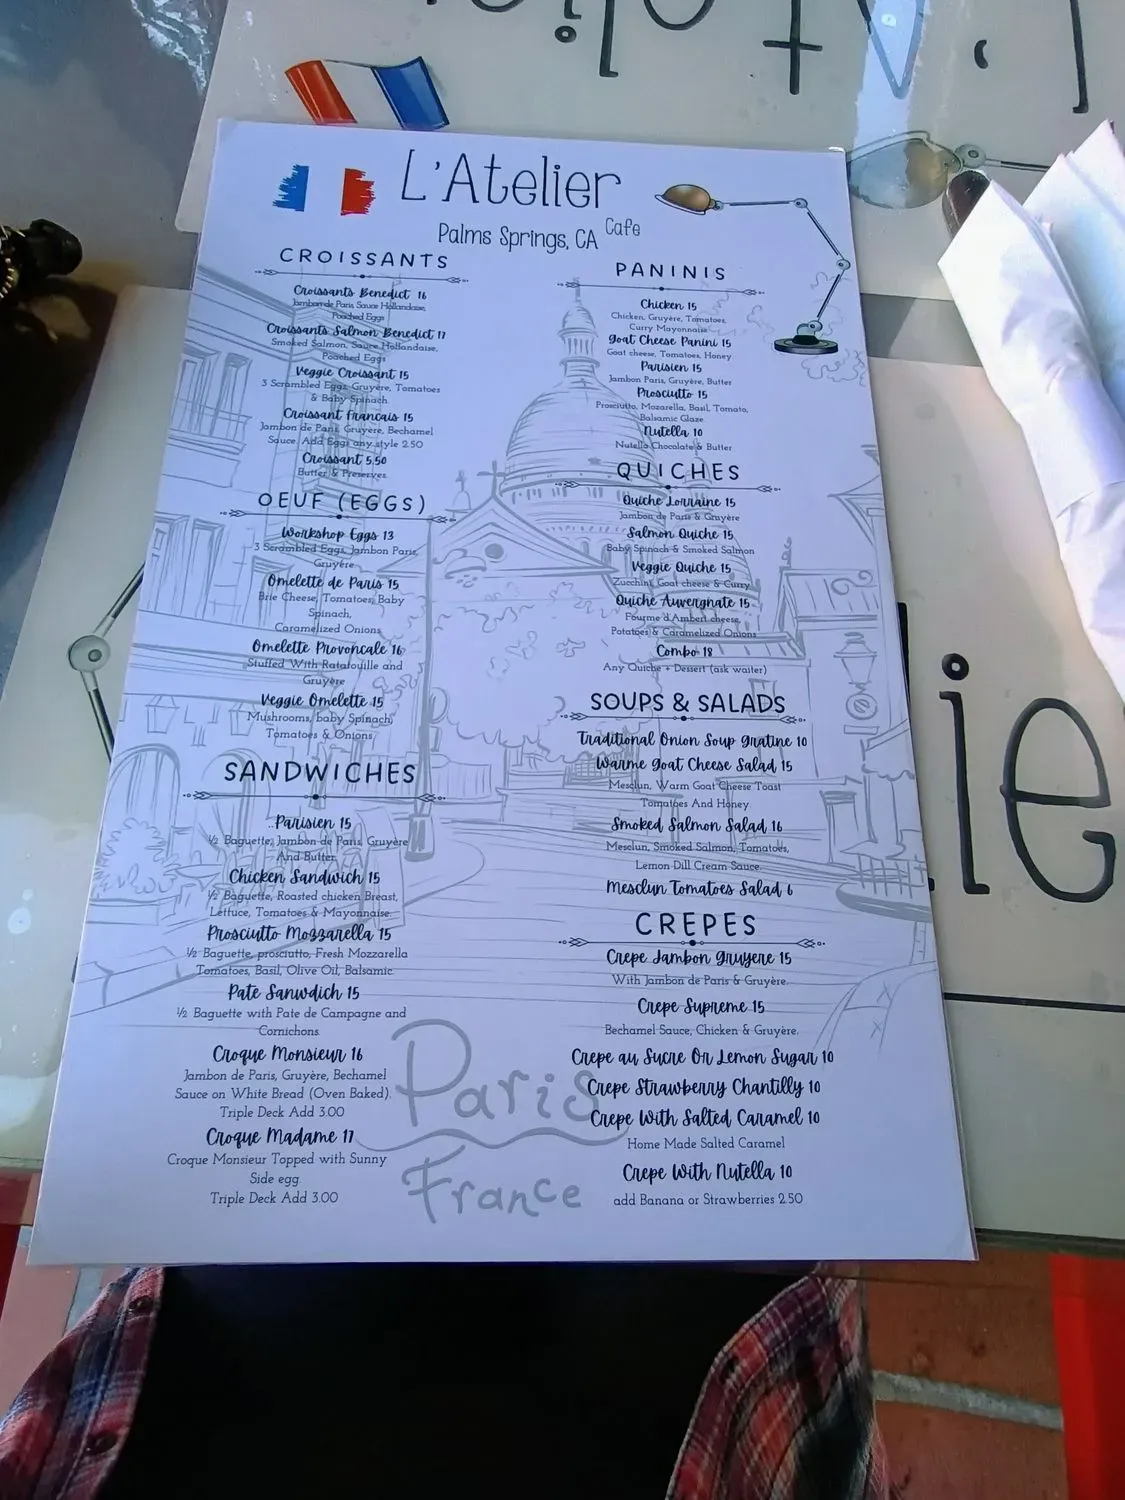 L'Atelier
L'Atelier
Cafe
Palms Springs, CA
CROISSANTS
Croissants Benedict 16
Jambon de Paris Sauce Hollandaise,
Poached Eggs
Croissants Salmon Benedict 17
Smoked Salmon, Sauce Hollandaise,
Poached Eggs
Veggie Croissant 15
3 Scrambled Eggs, Gruyère, Tomatoes
& Baby Spinach
Croissant Francais 15
Jambon de Paris, Gruyère, Bechamel
Sauce. Add Eggs any style 2.50
Croissant 5.50
Butter & Preserves
OEUF (EGGS)
Workshop Eggs 13
3 Scrambled Eggs, Jambon Paris,
Gruyère
Omelette de Paris 15
Brie Cheese, Tomatoes, Baby
Spinach,
Caramelized Onions
Omelette Provoncale 16
Stuffed With Ratatouille and
Gruyère
Veggie Omelette 15
Mushrooms, baby Spinach,
Tomatoes & Onions
SANDWICHES
Parisien 15
½ Baguette, Jambon de Paris, Gruyère
And Butter
Chicken Sandwich 15
½ Baguette, Roasted chicken Breast,
Lettuce, Tomatoes & Mayonnaise.
Prosciutto Mozzarella 15
½ Baguette, prosciutto, Fresh Mozzarella
Tomatoes, Basil, Olive Oil, Balsamic
Pate Sanwdich 15
½ Baguette with Pate de Campagne and
Cornichons
Croque Monsieur 16
Jambon de Paris, Gruyère, Bechamel
Sauce on White Bread (Oven Baked).
Triple Deck Add 3.00
Croque Madame 17
Croque Monsieur Topped with Sunny
Side egg.
Triple Deck Add 3.00
PANINIS
Chicken 15
Chicken, Gruyère, Tomatoes,
Curry Mayonnaise
Goat Cheese Panini 15
Goat cheese, Tomatoes, Honey
Parisien 15
Jambon Paris, Gruyère, Butter
Prosciutto 15
Prosciutto, Mozarella, Basil, Tomato,
Balsamic Glaze
Nutella 10
Nutella Chocolate & Butter
QUICHES
Quiche Lorraine 15
Jambon de Paris & Gruyère
Salmon Quiche 15
Baby Spinach & Smoked Salmon
Veggie Quiche 15
Zucchini, Goat cheese & Curry
Quiche Auvergnate 15
Fourme d'Ambert cheese,
Potatoes & Caramelized Onions
Combo 18
Any Quiche + Dessert (ask waiter)
SOUPS & SALADS
Traditional Onion Soup Gratine 10
Warme Goat Cheese Salad 15
Mesclun, Warm Goat Cheese Toast
Tomatoes And Honey
Smoked Salmon Salad 16
Mesclun, Smoked Salmon, Tomatoes,
Lemon Dill Cream Sauce.
Mesclun Tomatoes Salad 6
CREPES
Crepe Jambon Gruyere 15
With Jambon de Paris & Gruyère.
Crepe Supreme 15
Bechamel Sauce, Chicken & Gruyère.
Crepe au Sucre Or Lemon Sugar 10
Crepe Strawberry Chantilly 10
Crepe With Salted Caramel 10
Home Made Salted Caramel
Crepe With Nutella 10
add Banana or Strawberries 2.50
Paris
France
lie